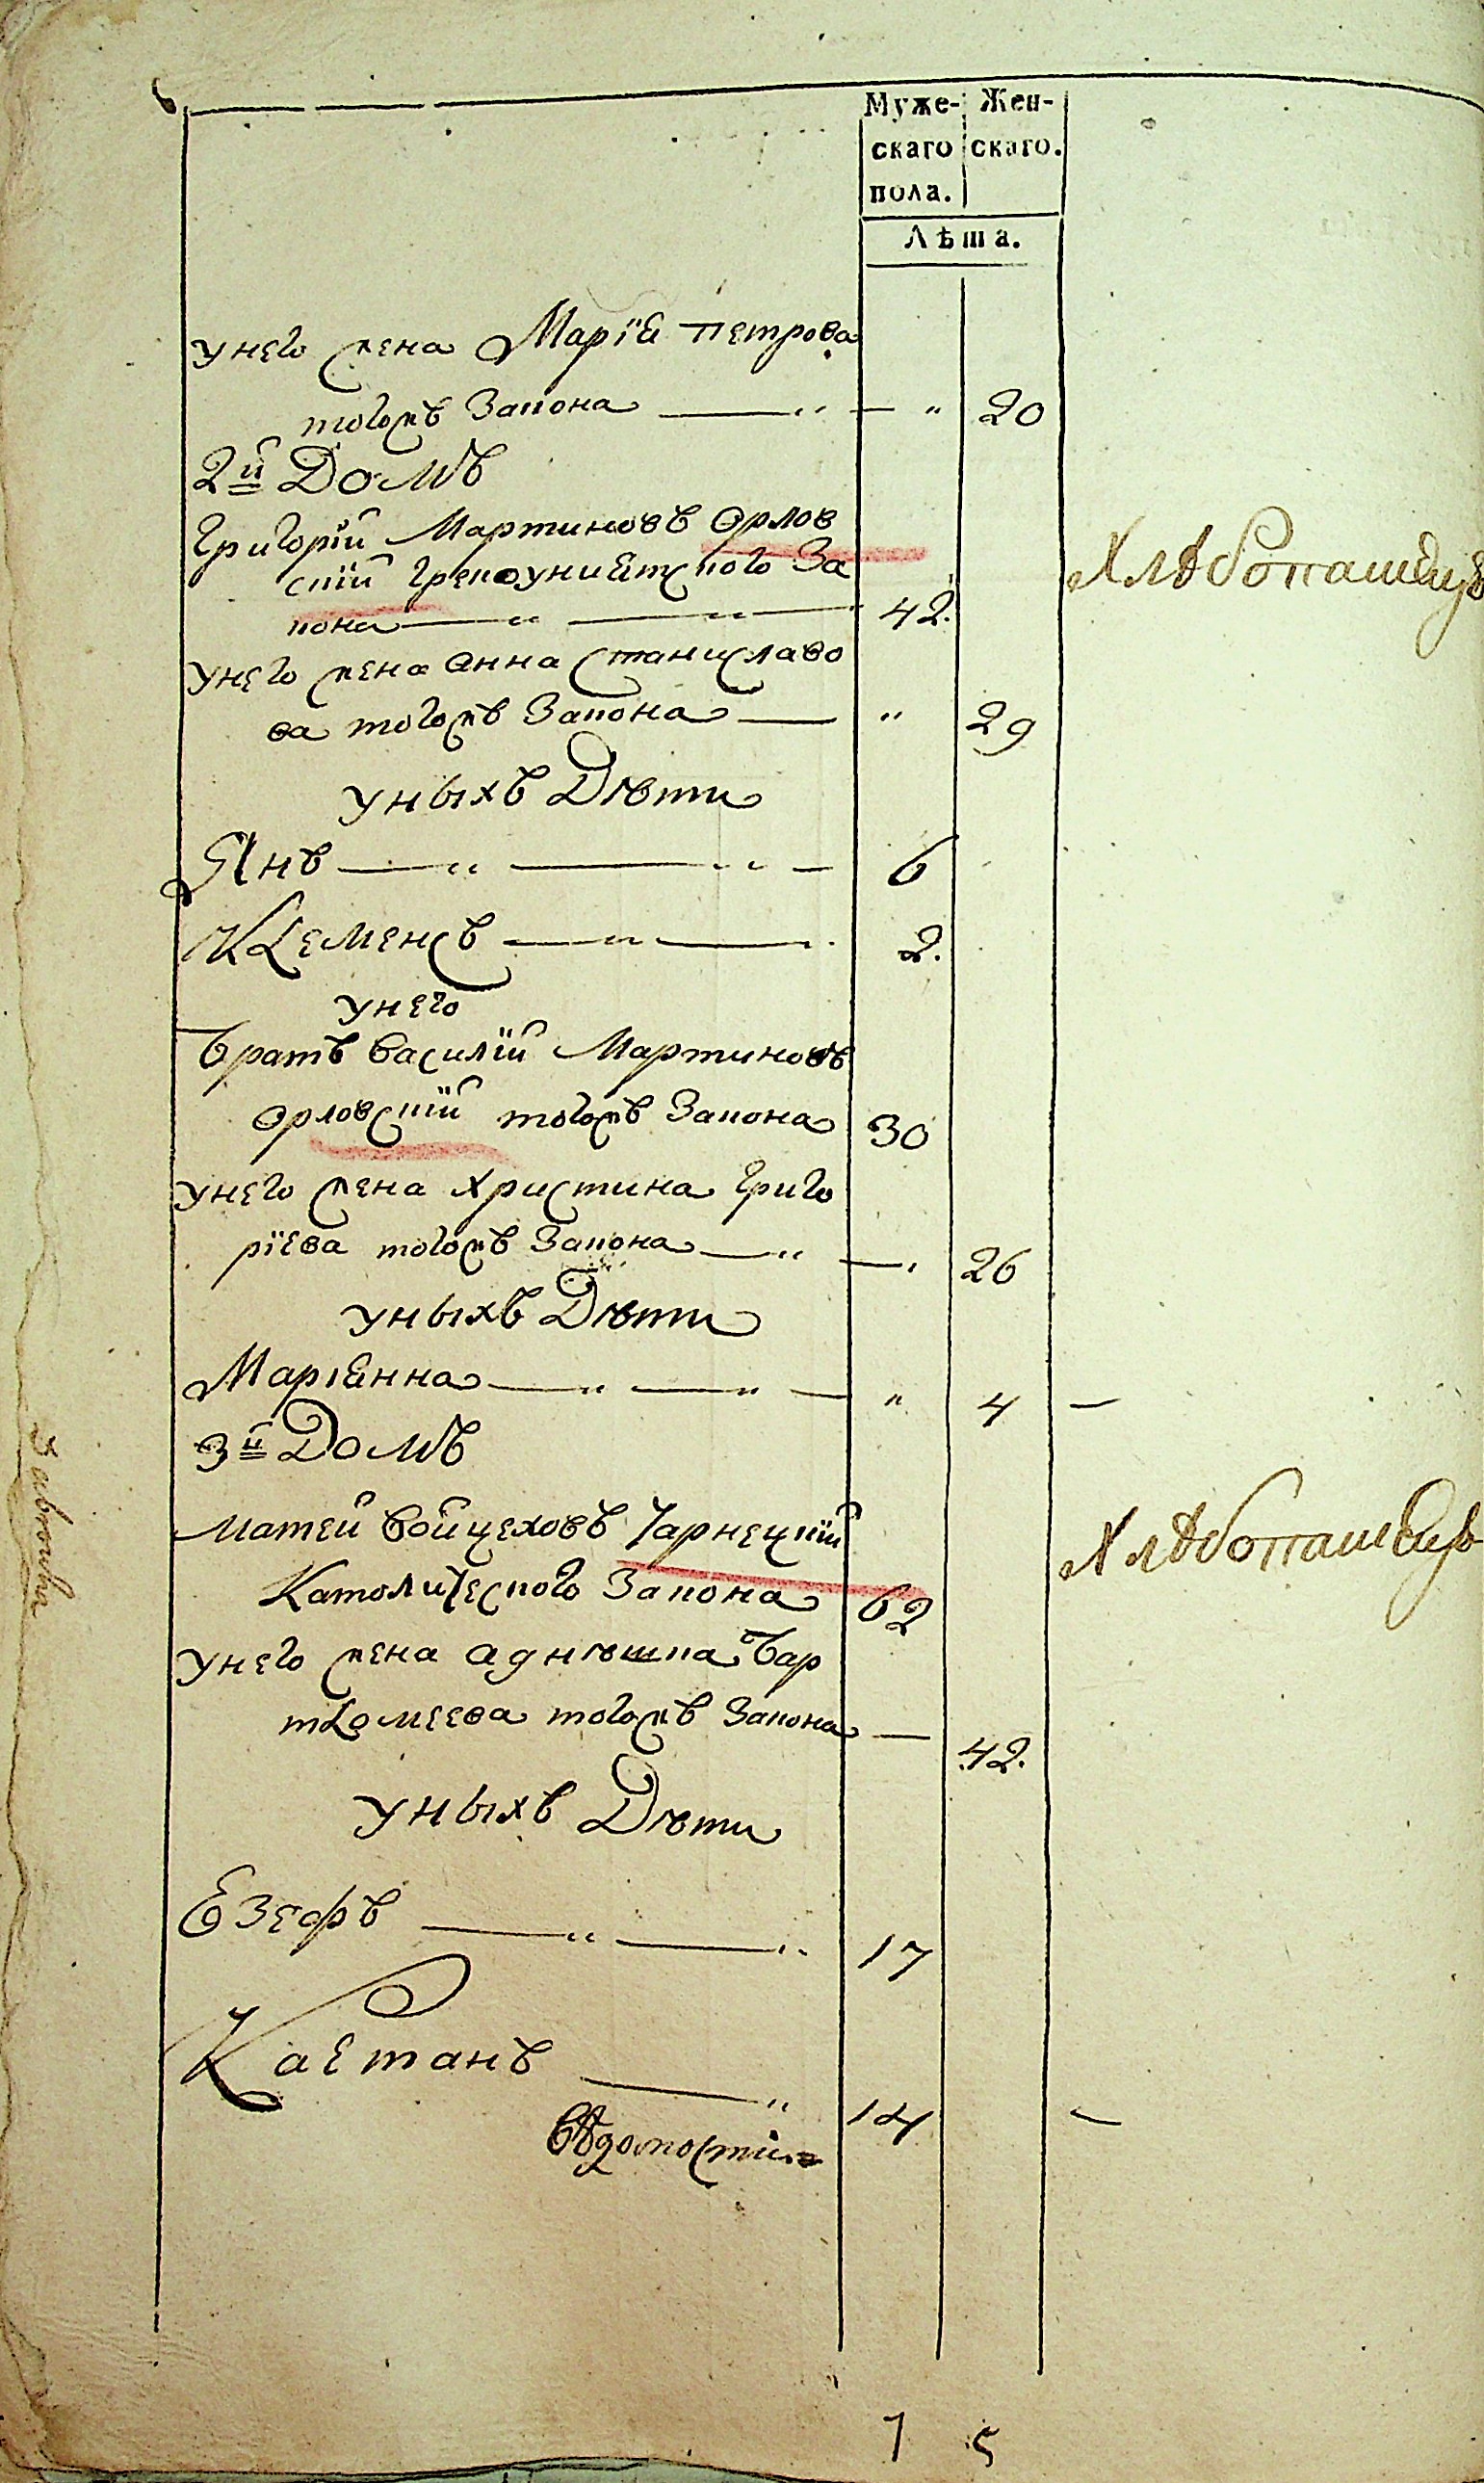 Муже- Жен-
скаго скаго.
пола.
Лѣта.
унего жена Марія Петрова
тогожъ Закона — „ — „ 20
2й Домъ
Григорій Мартиновъ Орлов
скій грекоуниятского За Хлѣбопашецъ
кона — „ — „ — 42.
унего жена Анна Станиславо
ва тогожъ Закона — „ 29
уныхъ Дѣти
Янъ — „ — „ — 6
Клеменсъ — „ — „ 2.
унего
Братъ Василій Мартиновъ
Орловскій тогожъ Закона 30
унего жена Христина Григо
ріева тогожъ Закона — „ — 26
уныхъ Дѣти
Маріянна — „ — „ — „ 4 —
3й Домъ
Матей Войцеховъ Чарнецкій Хлѣбопашецъ
Католического Закона 62
унего жена Агнѣшка Бар
тломеева тогожъ Закона — 42.
уныхъ Дѣти
Езефъ — „ — „ 17
Каетанъ — „ 14 —
Вѣдомости
7 5